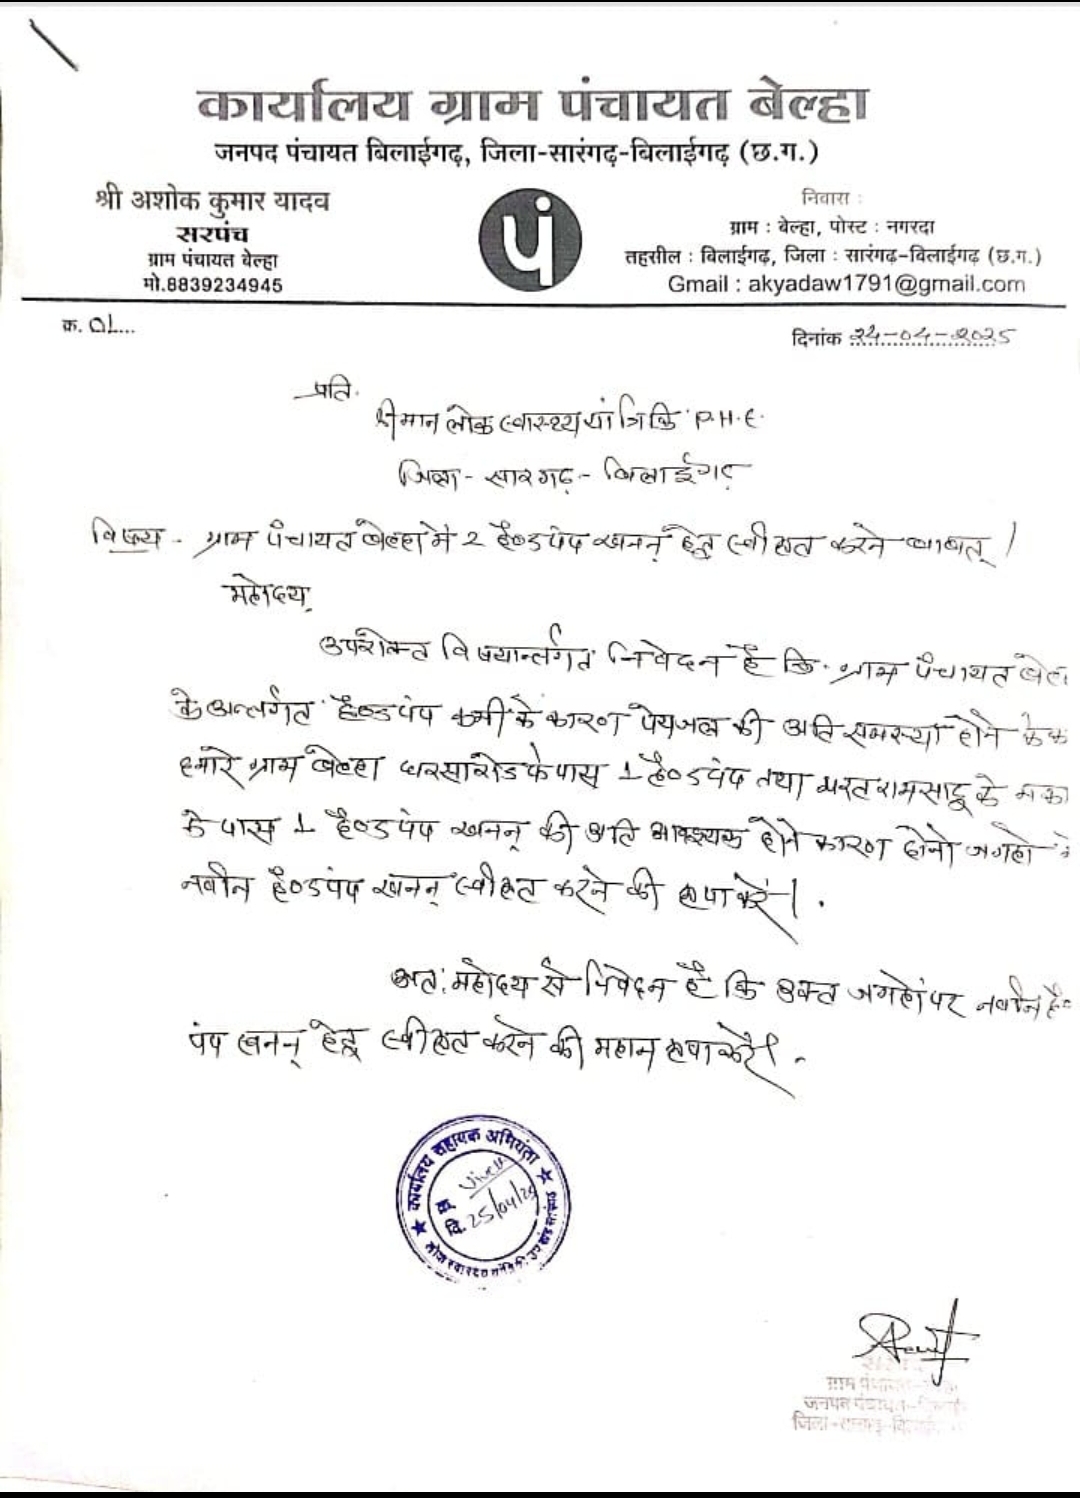 कार्यालय ग्राम पंचायत बेल्हा
जनपद पंचायत बिलाईगढ़, जिला-सारंगढ़-बिलाईगढ़ (छ.ग.)
श्री अशोक कुमार यादव
सरपंच
ग्राम पंचायत बेल्हा
मो.8839234945
पं
निवास :
ग्राम : बेल्हा, पोस्ट : नगरदा
तहसील : बिलाईगढ़, जिला : सारंगढ़-बिलाईगढ़ (छ.ग.)
Gmail : akyadaw1791@gmail.com
क्र. 01...
दिनांक 24-04-2025
प्रति.
श्रीमान लोक स्वास्थ्य यांत्रिकि P.H.E.
जिला - सारगढ़ - बिलाईगढ़
विषय - ग्राम पंचायत बेल्हा मे 2 हैण्डपंप खनन् हेतु स्वीकृत करने बाबत् ।
महोदय,
उपरोक्त विषयान्तर्गत निवेदन है कि ग्राम पंचायत
के अन्तर्गत हैण्डपंप कमी के कारण पेयजल की अति समस्या होने के
हमारे ग्राम बेल्हा धरसारोड के पास 1 हैण्डपंप तथा भरत राम साहू के
के पास 1 हैण्डपंप खनन् की अति आवश्यक होने कारण दोनो जगहो
नवीन हैण्डपंप खनन् स्वीकृत करने की कृपा करें।
अतः महोदय से निवेदन है कि उक्त जगहों पर नवीन
पंप खनन् हेतु स्वीकृत करने की महान कृपा करें।
कार्यालय सहायक अभियंता
क्र.
दि. 25/04/25
लोक स्वास्थ्य यांत्रिकी
ग्राम पंचायत
जनपद पंचायत
जिला